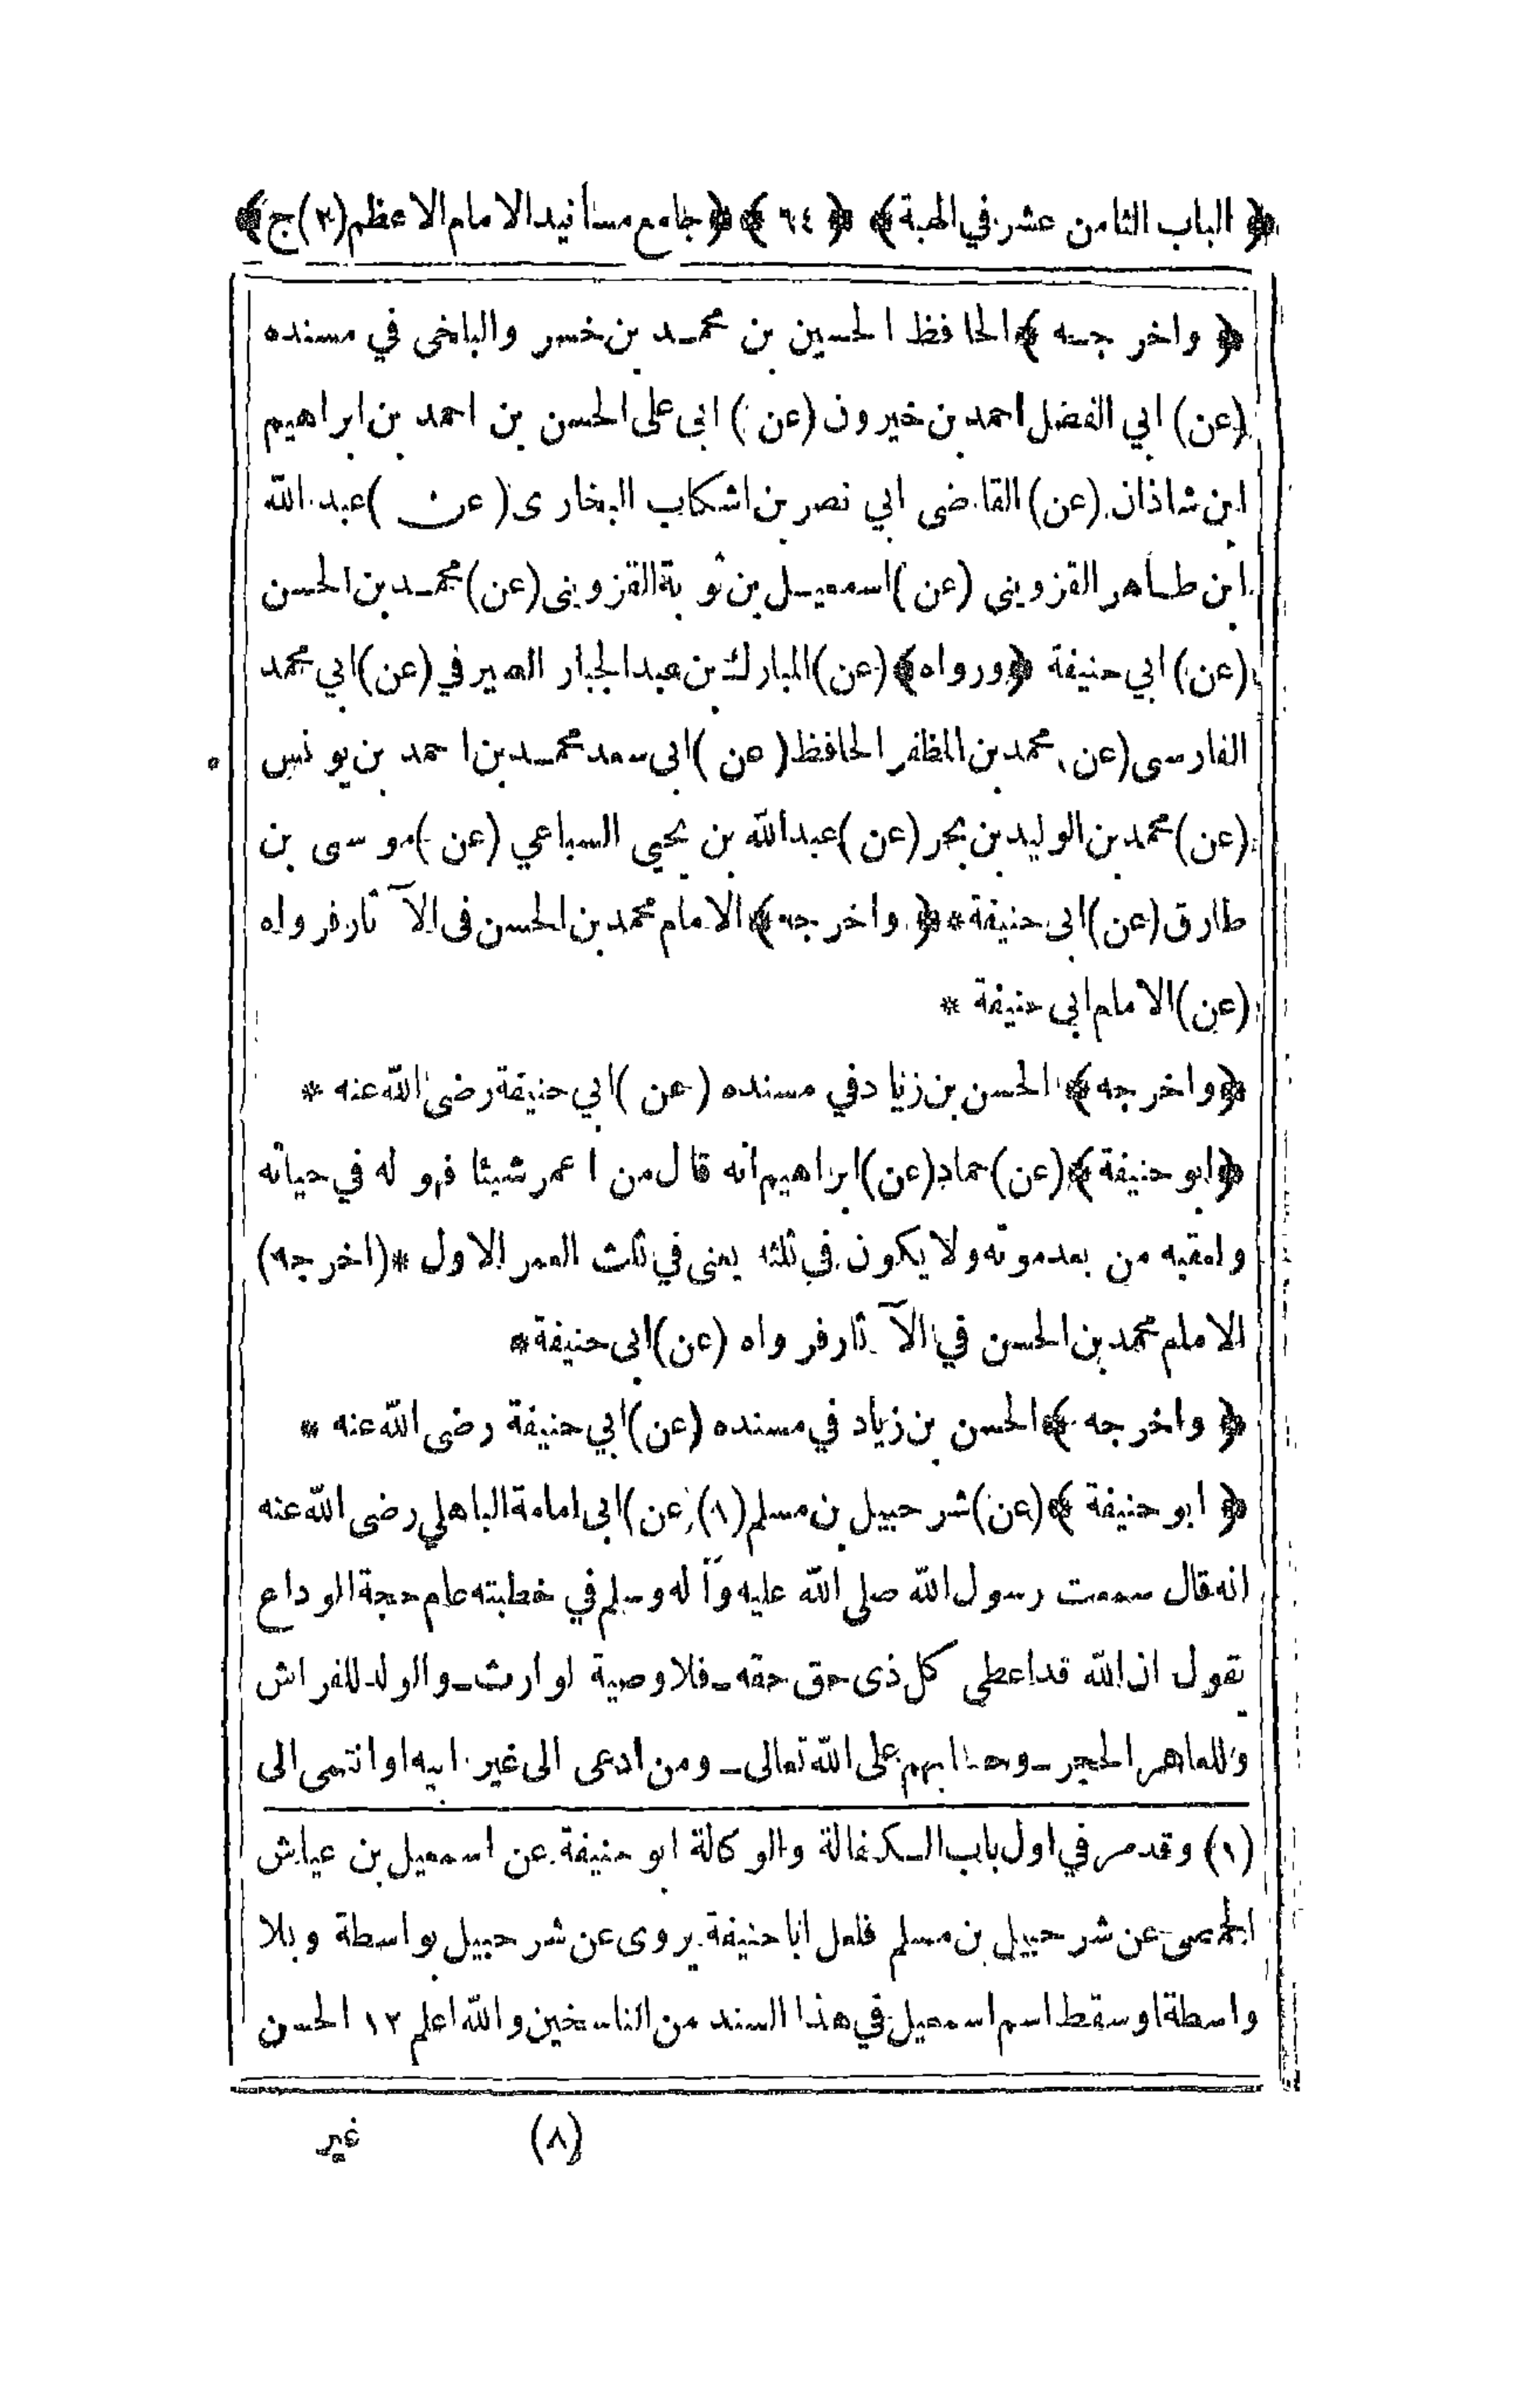 ﴿ الباب الثامن عشر في الهبة ﴾ ﴿ ٦٤ ﴾ ﴿ جامع مسانيد الامام الاعظم (٢) ج ﴾
﴿ واخرجه ﴾ الحافظ الحسين بن محمد بن خسرو البلخى في مسنده
(عن) ابي الفضل احمد بن خيرون (عن) ابى على الحسن بن احمد بن ابراهيم
ابن شاذان (عن) القاضى ابي نصر بن اشكاب البخارى (عن) عبد الله
ابن طاهر القزوينى (عن) اسمعيل بن توبة القزوينى (عن) محمد بن الحسن
(عن) ابي حنيفة ﴿ ورواه ﴾ (عن) المبارك بن عبد الجبار الصيرفي (عن) ابي محمد
الفارسى (عن) محمد بن المظفر الحافظ (عن) ابى سعد محمد بن احمد بن يونس
(عن) محمد بن الوليد بن بحر (عن) عبد الله بن يحيى السباعي (عن) موسى بن
طارق (عن) ابى حنيفة * ﴿ واخرجه ﴾ الامام محمد بن الحسن فى الآثار فرواه
(عن) الامام ابى حنيفة *
﴿ واخرجه ﴾ الحسن بن زياد في مسنده (عن) ابي حنيفة رضى الله عنه *
﴿ ابو حنيفة ﴾ (عن) حماد (عن) ابراهيم انه قال من اعمر شيئا فهو له في حياته
ولعقبه من بعد موته ولا يكون في ثلثه يعنى في ثلث العمر الاول * (اخرجه)
الامام محمد بن الحسن في الآثار فرواه (عن) ابى حنيفة *
﴿ واخرجه ﴾ الحسن بن زياد في مسنده (عن) ابي حنيفة رضى الله عنه *
﴿ ابو حنيفة ﴾ (عن) شرحبيل بن مسلم (١) (عن) ابى امامة الباهلي رضى الله عنه
انه قال سمعت رسول الله صلى الله عليه وآله وسلم في خطبته عام حجة الوداع
يقول ان الله قد اعطى كل ذى حق حقه ـ فلا وصية لوارث ـ والولد للفراش
وللعاهر الحجر ـ وحسابهم على الله تعالى ـ ومن ادعى الى غير ابيه او انتمى الى
(١) وقد مر في اول باب الكفالة والوكالة ابو حنيفة عن اسمعيل بن عياش
الحمصى عن شرحبيل بن مسلم فلعل ابا حنيفة يروى عن شرحبيل بواسطة وبلا
واسطة او سقط اسم اسمعيل في هذا السند من الناسخين والله اعلم ١٢ الحسن
(٨) غير